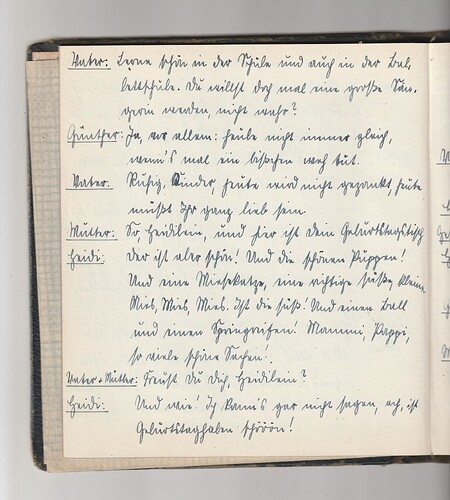 Vater: Lerne schön in der Schule und auch in der Bal-
lettschule. Du willst doch mal eine große Tän-
zerin werden, nicht wahr?
Günther: Ja, vor allem: heule nicht immer gleich,
wenn's mal ein bißchen weh tut.
Vater: Ruhig, Kinder heute wird nicht gezankt, heute
müßt Ihr ganz lieb sein.
Mutter: So, Heidilein, und hier ist Dein Geburtstagstisch.
Heidi: Der ist aber schön! Und die schönen Puppen!
Und eine Miesekatze, eine richtige süße, kleine
Mies, Mies, Mies. Ist die süß! Und einen Ball
und einen Springreifen! Mammi, Pappi,
so viele schöne Sachen!
Vater + Mutter: Freust Du Dich, Heidilein?
Heidi: Und wie! Ich kann's gar nicht sagen, ach, ist
Geburtstaghaben schööön!